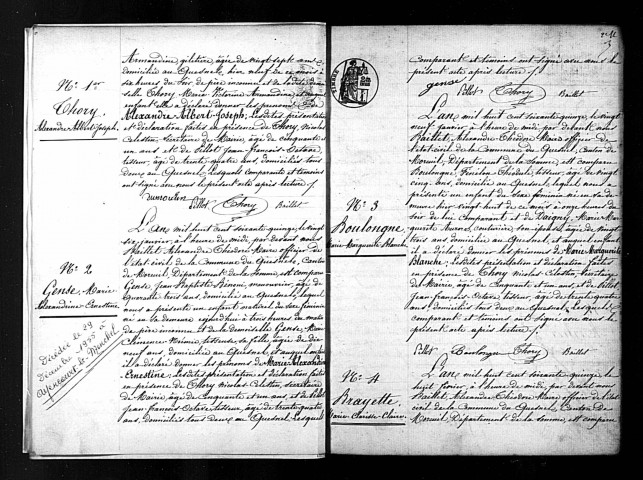 Armandine gileteuse, âgée de vingt sept ans,
domiciliée au Quesnel, hier neuf de ce mois à
six heures du soir de père inconnu et de la dite demoi-
selle Thory Marie Victorine Armandine, et auquel
enfant elle a déclaré donner les prénoms de
Alexandre Albert Joseph; Lesdites présentation
et déclaration faites en présence de Thory Nicolas
Celestin, Secrétaire de Mairie, âgé de cinquante et
un ans et de Pillot Jean François Octave
tisseur, âgé de trente quatre ans, domiciliés tous
deux au Quesnel, lesquels comparante et témoins
ont signé avec nous le présent acte après lecture./.
Pillot Thory Baillet
No 1er
Thory
Alexandre Albert Joseph
L'an mil huit cent soixante quinze, le vingt
six janvier, à heure de midi, par devant nous
Baillet Alexandre Théodore Maire officier de
l'état civil de la Commune du Quesnel, Canton
de Moreuil, Département de la Somme, est comparu
Gense, Jean Baptiste Benoni, manouvrier, âgé de
quarante trois ans, domicilié au Quesnel, lequel
nous a présenté un enfant naturel du sexe féminin
né en sa demeure aujourd'hui à trois heures du matin
de père inconnu et de la demoiselle Gense, Marie
Philomène Noémie, tisseuse, sa fille, âgée de dix
neuf ans, domiciliée au Quesnel, et auquel enfant
il a déclaré donner les prénoms de Marie Alexandrine
Ernestine, lesdites présentation et déclaration faites
en présence de Thory Nicolas Celestin, secrétaire
de Mairie, âgé de cinquante et un ans, et de Pillot
Jean François Octave tisseur, âgé de trente quatre
ans, domiciliés tous deux au Quesnel, lesquels
No 2
Gense, Marie
Alexandrine Ernestine
Décédée le 29
Décembre 1955 à
comparant et témoins ont signé avec nous le
présent acte après lecture./.
gense Pillot Thory Baillet
L'an mil huit cent soixante quinze, le vingt
neuf janvier à heure de midi, par devant nous
Baillet, Alexandre Théodore Maire officier de
l'état civil de la Commune du Quesnel, Canton de
Moreuil, Département de la Somme, est comparu
Boulongne, tisseur, âgé de vingt
cinq ans, domicilié au Quesnel, lequel nous a
présenté un enfant du sexe féminin né en sa de-
meure hier vingt huit de ce mois à onze heures du
soir de lui comparant et de Marie Mar-
guerite son épouse, âgée de vingt
trois ans, domiciliée au Quesnel, et auquel enfant
il a déclaré donner les prénoms de Marie Marguerite
Blanche; Lesdites présentation et déclaration faites
en présence de Thory Nicolas Celestin, Secrétaire
de Mairie, âgé de cinquante et un ans, et de Pillot,
Jean François Octave, tisseur, âgé de trente quatre ans
domiciliés tous deux au Quesnel, lesquels
comparant et témoins ont signé avec nous le
présent acte après lecture./.
Pillot Boulongne Thory Baillet
No 3
Boulongne
Marie Marguerite Blanche
L'an mil huit cent soixante quinze, le
huit février, à heure de midi, par devant nous
Baillet, Alexandre Théodore Maire officier de l'état
civil de la Commune du Quesnel, Canton de
Moreuil, Département de la Somme, est comparu
No 4
Brayette
Marie Clarisse Claire